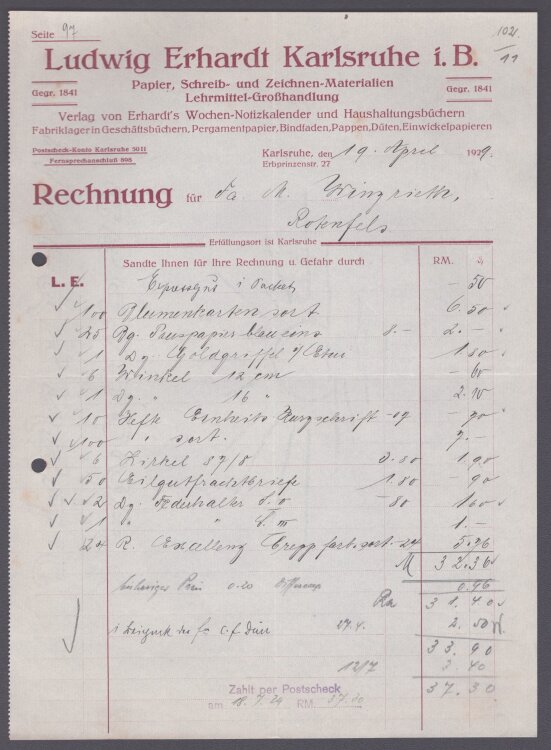 Seite 97
1021/11
Ludwig Erhardt Karlsruhe i. B.
Gegr. 1841
Papier, Schreib- und Zeichnen-Materialien
Lehrmittel-Großhandlung
Gegr. 1841
Verlag von Erhardt's Wochen-Notizkalender und Haushaltungsbüchern
Fabriklager in Geschäftsbüchern, Pergamentpapier, Bindfaden, Pappen, Düten, Einwickelpapieren
Postscheck-Konto Karlsruhe 5011
Fernsprechanschluß 898
Karlsruhe, den 19. April 1929.
Erbprinzenstr. 27
Rechnung für Fa M.
Rotenfels
Erfüllungsort ist Karlsruhe
L. E. Sandte Ihnen für Ihre Rechnung u. Gefahr durch RM. ₰
i Packet – 50
100 Blumenkarten sort 6.50
25 Bg. Pauspapier 8.– 2.–
1 Dg. Goldgriffel Etui 1.80
6 Winkel 12 cm – 60
1 Dg. " 16 " 2.10
10 Hefte Einheits Kurzschrift – 90
100 " sort. 7.–
6 Zirkel 1.90
50 Eilgutfrachtbriefe 1.80 – 90
2 Dg. Federhalter – 80 1.60
1 " " 1.–
24 R. Excellenz Crepp farb. sort – 24 5.76
M 32.36
bisheriges 0.20 Differenz 0.96
31.40
27.4. 2.50
33.90
12/7 3.40
37.30
Zahlt per Postscheck
am 18.7.29 RM. 37.30